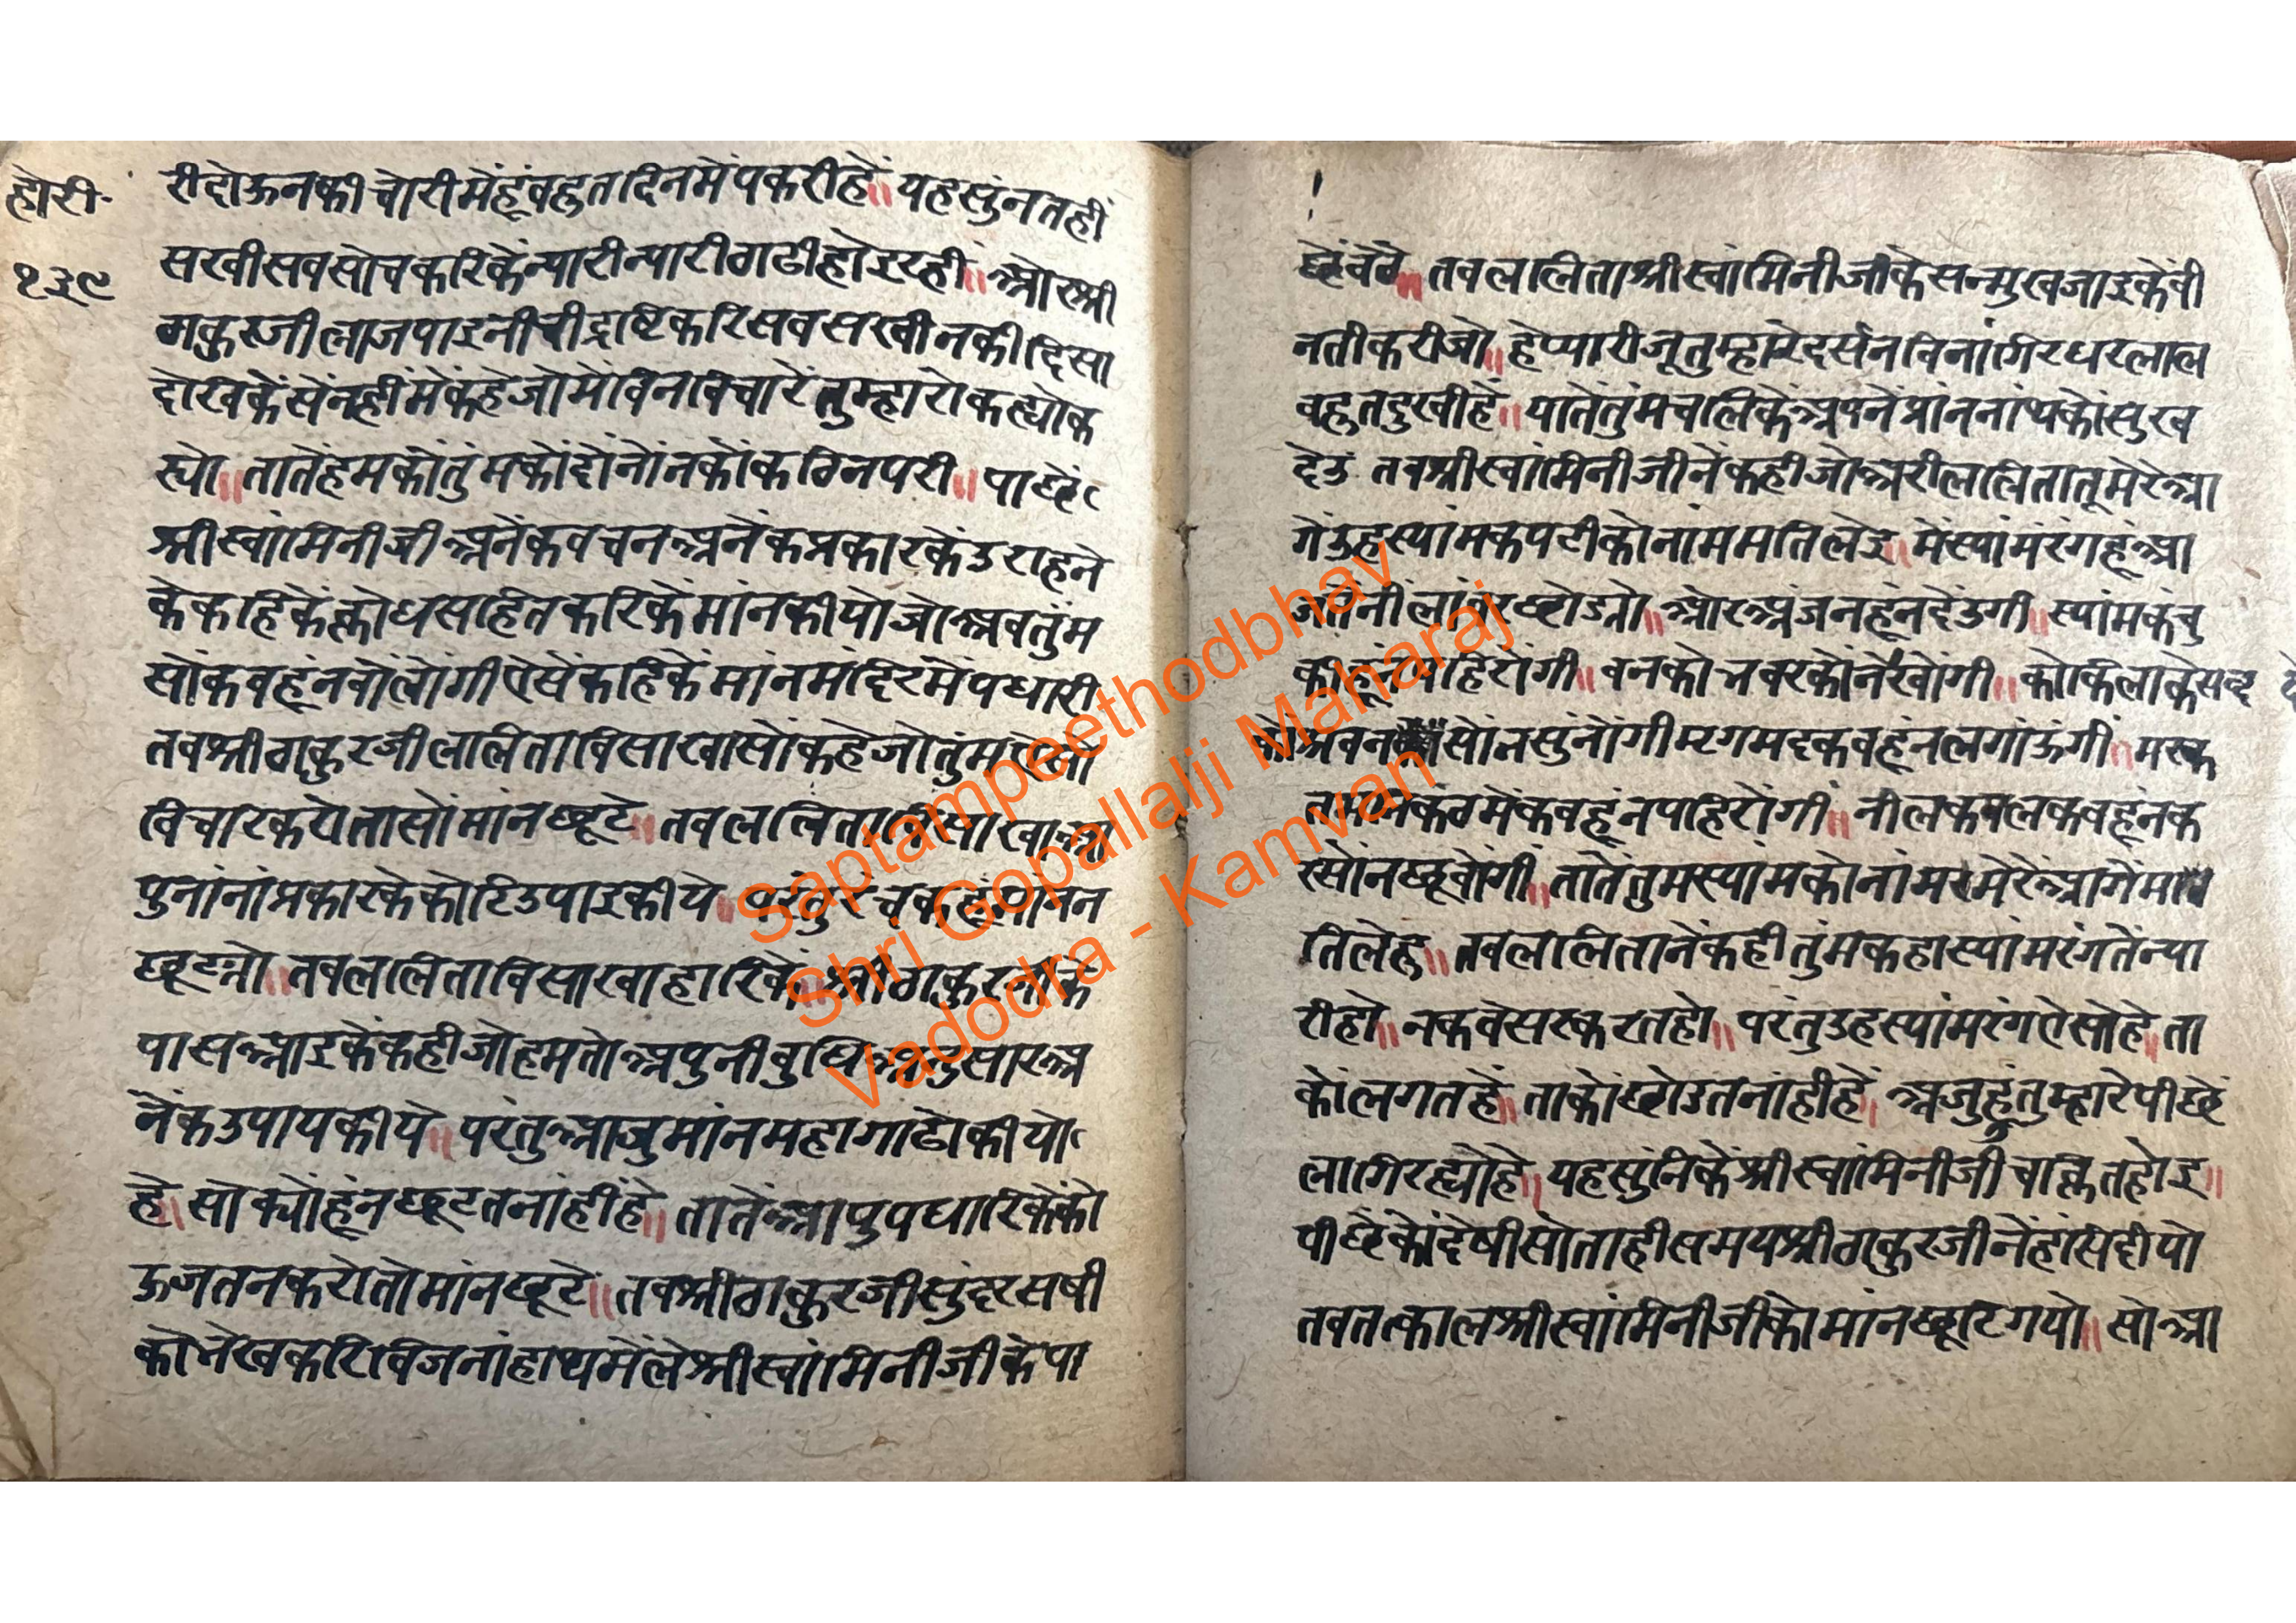 होरी॰
१३९
रीदोऊनकी चोरी मेंहूं वहुत दिनमें पकरीहें॥ यह सुंनतहीं
सखी सव सोच करिकें न्यारी न्यारी ठाढी होइ रही॥ ओर श्री
ठाकुरजी लाज पाइ नीची द्रष्टि करि सव सखीनकी दिसा
देखिकें सेंनहींमें कहे जो में विना विचारें तुम्हारो कह्यो क
स्यो॥ तातें हमकों तुंमकों दोंनोंनकों कठिन परी॥ पाछें
श्रीस्वांमिनीजी अनेंक वचन अनेंक प्रकारकें उराहने
के कहिकें क्रोध सहित करिकें मांन कीयो जो अव तुंम
सों कवहूं न वोलोंगी ऐसें कहिकें मांन मंदिरमें पधारी
तव श्रीठाकुरजी ललिता विसाखा सों कहे जो तुंम एसो
विचार करो तासों मांन छूटे॥ तव ललिता विसाखा आ
पु नांनां प्रकारके कोटि उपाइ कीये॥ परंतु रंचकहूं मांन न
छूट्यो॥ तव ललिता विसाखा हारिकें॥ श्रीठाकुरजीके
पास आइकें कही जो हम तो अपुनी वुधि अनुसार अ
नेंक उपाय कीये॥ परंतु आजु मांन महा गाढो कीयो
हे॥ सो क्योंहूं न छूटत नांहीं हे॥ तातें आपु पधारिकें को
ऊ जतन करो तो मांन छूटे॥ तव श्रीठाकुरजी सुंदर सषी
को भेख करि विजनां हाथमें ले श्रीस्वांमिनीजीके पा
छें वेठे॥ तव ललिता श्रीस्वांमिनीजीके सन्मुख जाइकें वी
नती करी जो॥ हे प्यारीजू तुम्हारे दर्सन विनां गिरधरलाल
वहुत दुखी हें॥ यातें तुंम चलिकें अपनें प्रांननांथकों सुख
देउ तव श्रीस्वांमिनीजीनें कही जो अरी ललिता तू मेरे आ
गें उह स्यांम कपटीको नांम मति लेइ॥ में स्यांम रंगहूं आ
जतें नीलांवर छोड्यो॥ ओर अंजनहूं न देंउगी॥ स्यांम कंचु
कीहूं न पहिरोंगी॥ वनको भवरकों न देखोंगी॥ कोकिलाके सव्द
कों श्रवन सों न सुंनोंगी म्रगमद कवहूं न लगांऊंगी॥ मरक
तमनि कंठमें कवहूं न पहिरोंगी॥ नील कमल कवहूं न क
रसों न छूवोंगी॥ तातें तुम स्यांमको नांम मेरें आगें म
ति लेहु॥ तव ललितानें कही तुंम कहा स्यांम रंगतें न्या
री हो॥ न कवे सरक राहो॥ परंतु उह स्यांम रंग ऐसो हे॥ ता
कों लगत हे॥ ताकों छोडत नांहीं हें॥ अजुहूं तुम्हारे पीछें
लागि रह्यो हे॥ यह सुंनिकें श्रीस्वांमिनीजी चक्रित होइ॥
पीछेंकों देषी सो ताही समय श्रीठाकुरजीनें हांसि दीयो
तव तत्काल श्रीस्वांमिनीजीको मांन छूटि गयो॥ सो आ
Saptampeethodbhav
Shri Gopallalji Maharaj
Vadodra - Kamvan